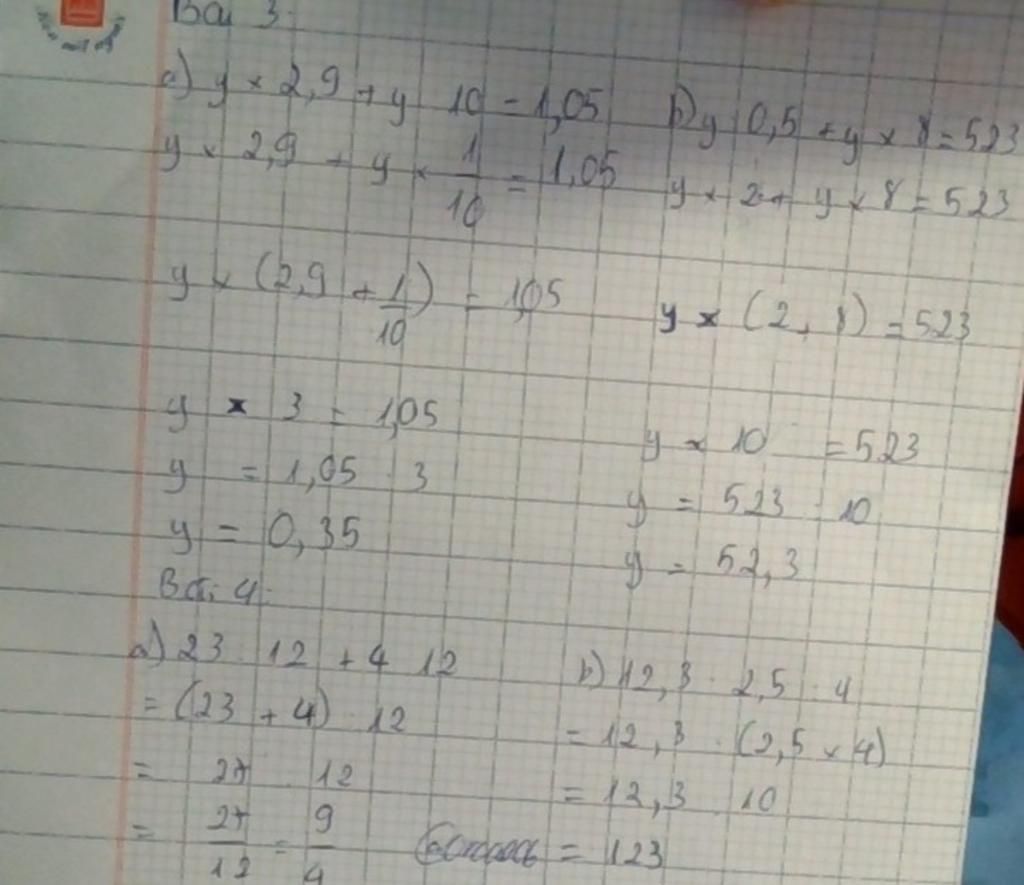 Bài 3:
a) y × 2,9 + y : 10 = 1,05
y × 2,9 + y × 1/10 = 1,05
y × (2,9 + 1/10) = 1,05
y × 3 = 1,05
y = 1,05 : 3
y = 0,35
b) y : 0,5 + y × 8 = 523
y × 2 + y × 8 = 523
y × (2 + 8) = 523
y × 10 = 523
y = 523 : 10
y = 52,3
Bài 4:
a) 23 : 12 + 4 : 12
= (23 + 4) : 12
= 27 : 12
= 27/12 = 9/4
b) 12,3 : 2,5 : 4
= 12,3 : (2,5 × 4)
= 12,3 : 10
= 123